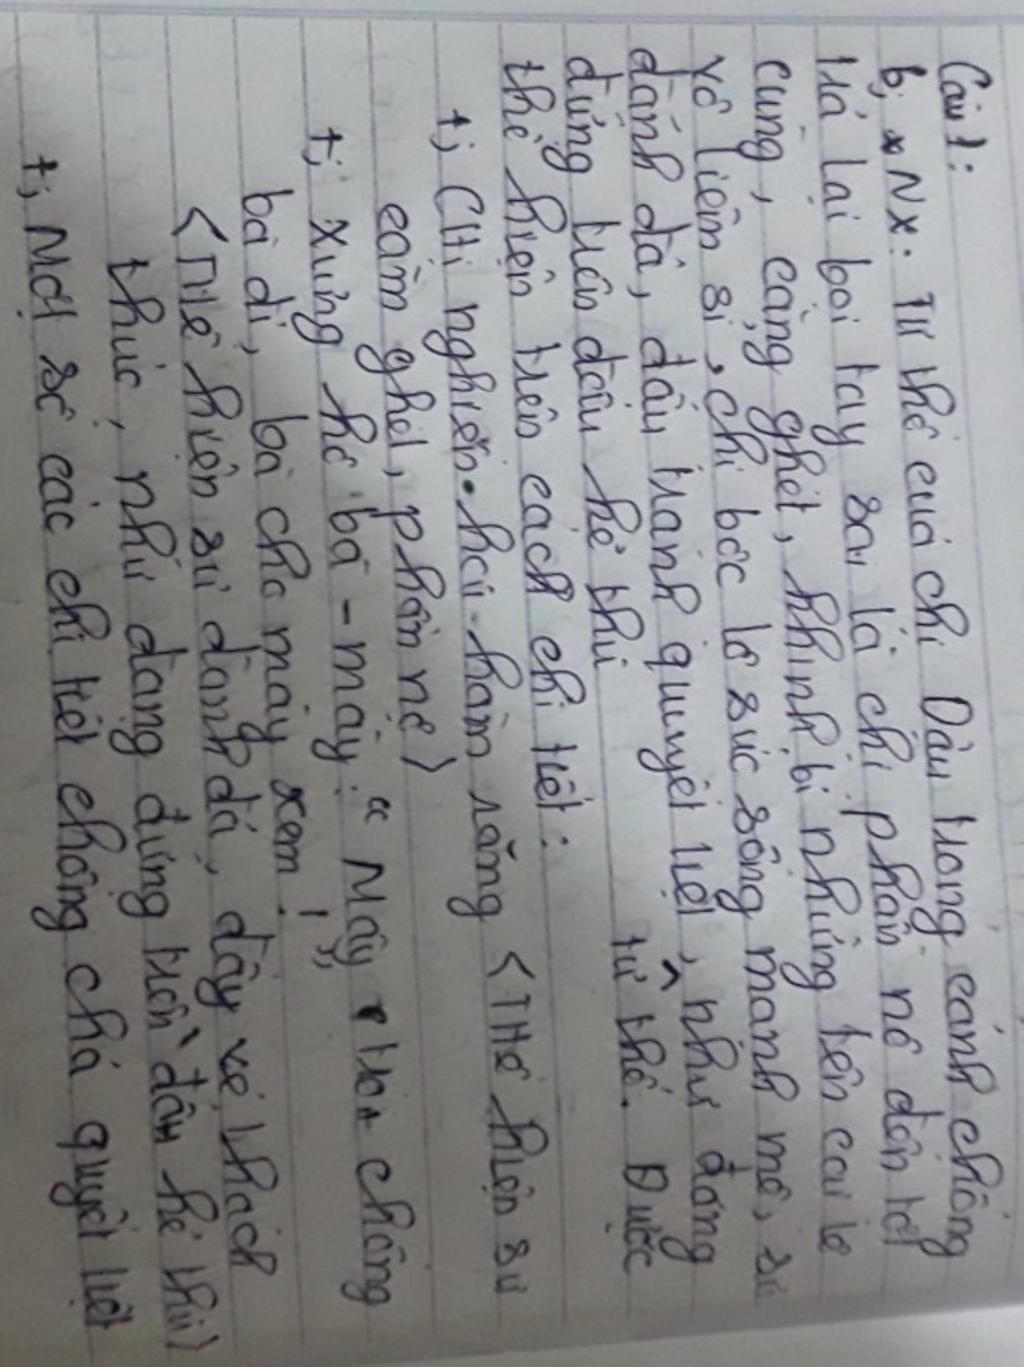 Câu 1:
b, * NX: Tư thế của chị Dậu trong cảnh chống
trả lại bọi tay sai là chị phẫn nộ đến tột
cùng, căng ghét, khinh bỉ những tên cai lệ
vô liêm sỉ, chị bộc lộ sức sống mạnh mẽ, sự
đánh đá, đấu tranh quyết liệt, như đang
đứng trên đầu kẻ thù tư thế. Được
thể hiện trên cách chi tiết:
+, Chị nghiến hai hàm răng <Thể hiện sự
căm ghét, phẫn nộ>
+, Xưng hô bà - mày: "Mày trói chồng
bà đi, bà cho mày xem!"
<Thể hiện sự đanh đá, đầy vẻ thách
thức, như đang đứng trên đầu kẻ thù>
+, Một số các chi tiết chống chả quyết liệt